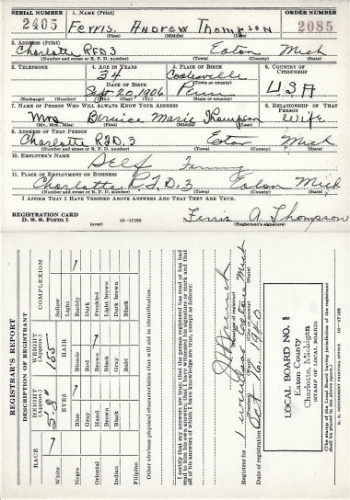 SERIAL NUMBER 1. NAME (Print) ORDER NUMBER
2405 Ferris Andrew Thompson 2085
(First) (Middle) (Last)
2. ADDRESS (Print)
Charlotte RFD.3 Eaton Mich
(Number and street or R. F. D. number) (Town) (County) (State)
3. TELEPHONE 4. AGE IN YEARS 5. PLACE OF BIRTH 6. COUNTRY OF CITIZENSHIP
34 USA
DATE OF BIRTH
Sept 20, 1906 Penn
(Exchange) (Number) (Mo.) (Day) (Yr.) (State or country)
7. NAME OF PERSON WHO WILL ALWAYS KNOW YOUR ADDRESS 8. RELATIONSHIP OF THAT PERSON
Mrs Bernice Marie Thompson Wife
(Mr., Mrs., Miss) (First) (Middle) (Last)
9. ADDRESS OF THAT PERSON
Charlotte RFD.3 Eaton Mich
(Number and street or R. F. D. number) (Town) (County) (State)
10. EMPLOYER'S NAME
Self Farming
11. PLACE OF EMPLOYMENT OR BUSINESS
Charlotte R.F.D.3 Eaton Mich
(Number and street or R. F. D. number) (Town) (County) (State)
I AFFIRM THAT I HAVE VERIFIED ABOVE ANSWERS AND THAT THEY ARE TRUE.
REGISTRATION CARD
D. S. S. Form 1 (over) Ferris A. Thompson
(Registrant's signature)
REGISTRAR'S REPORT
DESCRIPTION OF REGISTRANT
RACE HEIGHT (Approx.) WEIGHT (Approx.) COMPLEXION
5-8" 155
EYES HAIR
White
Negro
Oriental
Indian
Filipino
Blue
Gray
Hazel
Brown
Black
Blonde
Red
Brown
Black
Gray
Bald
Sallow
Light
Ruddy
Dark
Freckled
Light brown
Dark brown
Black
Other obvious physical characteristics that will aid in identification
I certify that my answers are true; that the person registered has read or has had read to him his own answers; that I have witnessed his signature or mark and that all of his answers of which I have knowledge are true, except as follows:
(Signature of registrar)
Registrar for 1 Eaton Mich
Date of registration Oct 16, 1940
LOCAL BOARD NO. 1
Eaton County
Charlotte, Michigan
STAMP OF LOCAL BOARD
(The stamp of the Local Board having jurisdiction of the registrant shall be placed in the above space.)
U. S. GOVERNMENT PRINTING OFFICE